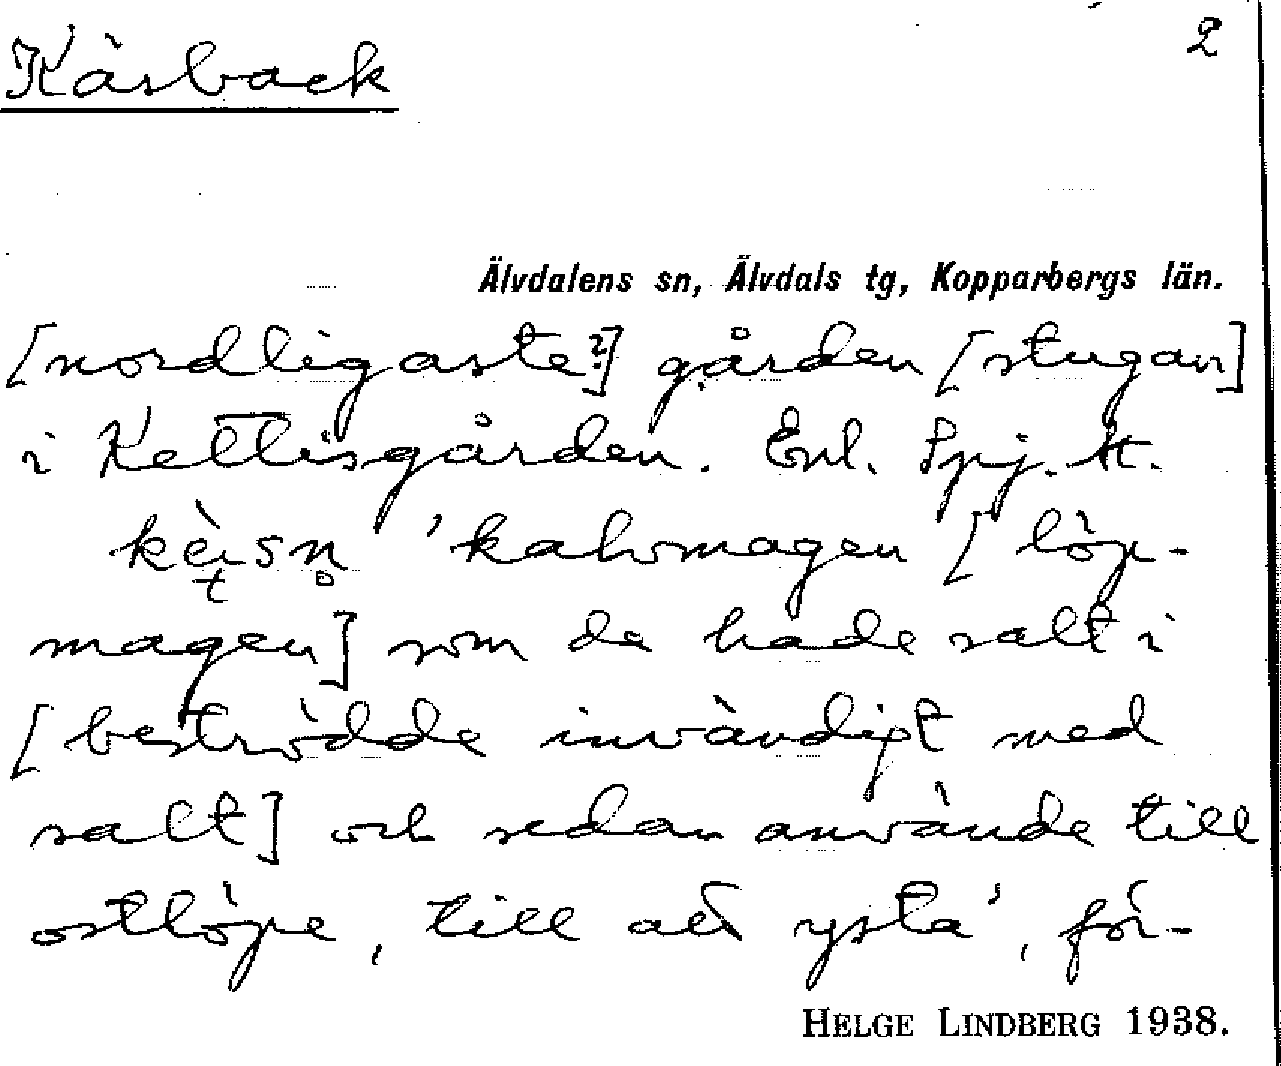 2
Käsback
Älvdalens sn, Älvdals tg, Kopparbergs län.
[nordligaste?] gården [stugan]
i Kettisgården. Enl. Spj. H.
'kalvmagen [löp-
magen] som de hade salt i
[beströdde invändigt med
salt] och sedan använde till
ostlöpe, till att ysta', för-
HELGE LINDBERG 1938.